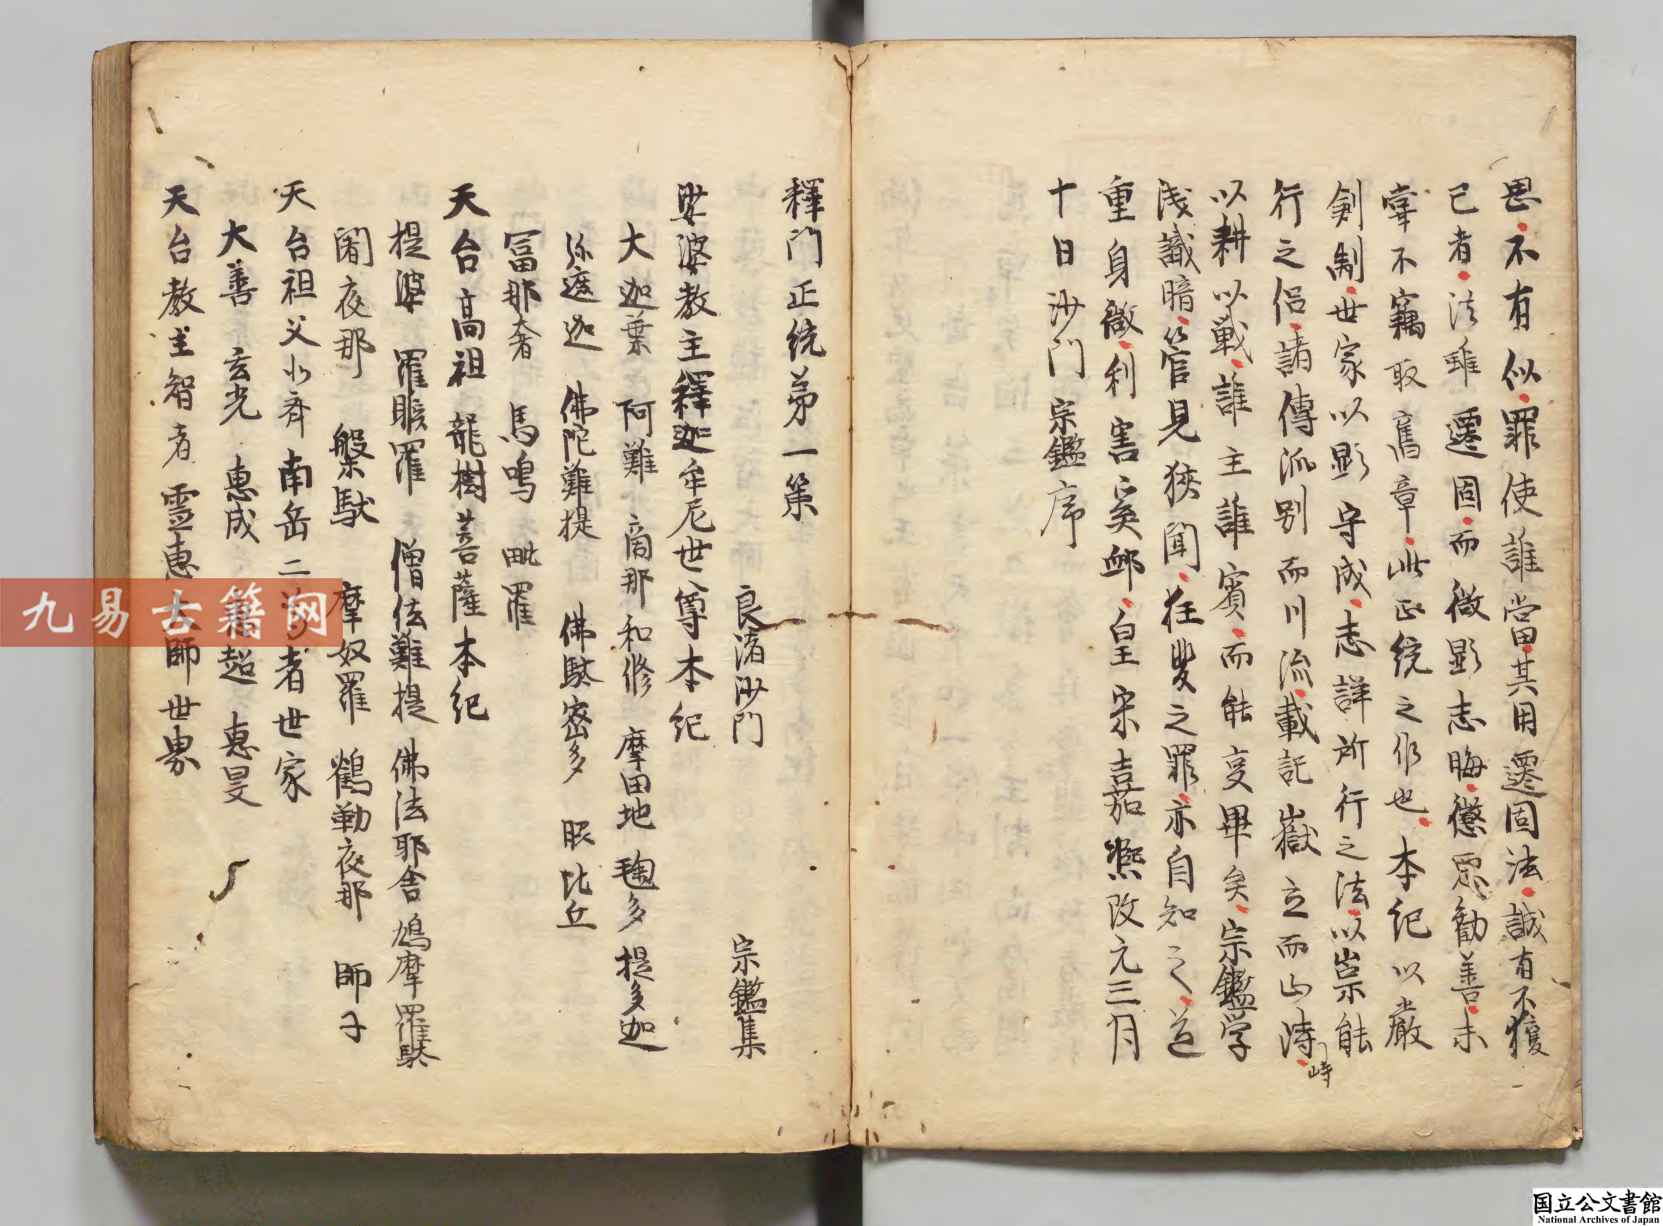 思不有似罪使誰當其用遷固法誠有不獲
已者法雖遷固而微顯志晦懲惡勸善未
嘗不竊取舊章此正統之作也本紀以嚴
剣制世家以顯守成志詳所行之法以崇能
行之侶諸傳派別而川流載記嶽立而山漪
峙
以耕以戰誰主誰賓而能事畢矣宗鑑学
浅識暗管見狹聞狂叟之罪亦自知之道
重身微利害奚邺皇宋嘉熙改元三月
十日沙门宗鑑序
釋门正统苐一策
良渚沙门 宗鑑集
娑婆教主釋迦牟尼世尊本紀
大迦葉 阿難 商那和修 摩田地 毱多 提多迦
弥遮迦 佛陀難提 佛馱密多 脇比丘
冨那奢 馬鳴 毗羅
天台高祖龍樹菩薩本紀
提婆 羅睺羅 僧佉難提 佛法耶舍 鳩摩羅馱
闍夜那 槃馱 摩奴羅 鶴勒夜那 師子
天台祖父北齊南岳二 者世家
大善 玄光 惠成 超 惠旻
天台教主智者霊惠大師世家
九易古籍网
国立公文書館
National Archives of Japan